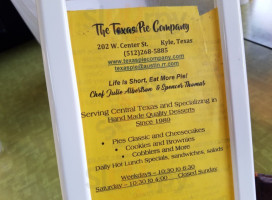 The Texas Pie Company
202 W. Center St. Kyle, Texas
(512)268-5885
www.texaspiecompany.com
texaspie@austin.rr.com
Life is Short, Eat More Pie!
Chef Julie Albertson & Spencer Thomas
Serving Central Texas and Specializing in
Hand Made Quality Desserts
Since 1986
• Pies Classic and Cheesecakes
• Cookies and Brownies
• Cobblers and More
Daily Hot Lunch Specials, sandwiches, salads
Weekdays – 10:30 to 6:30
Saturday – 10:30 to 4:00 Closed Sunday